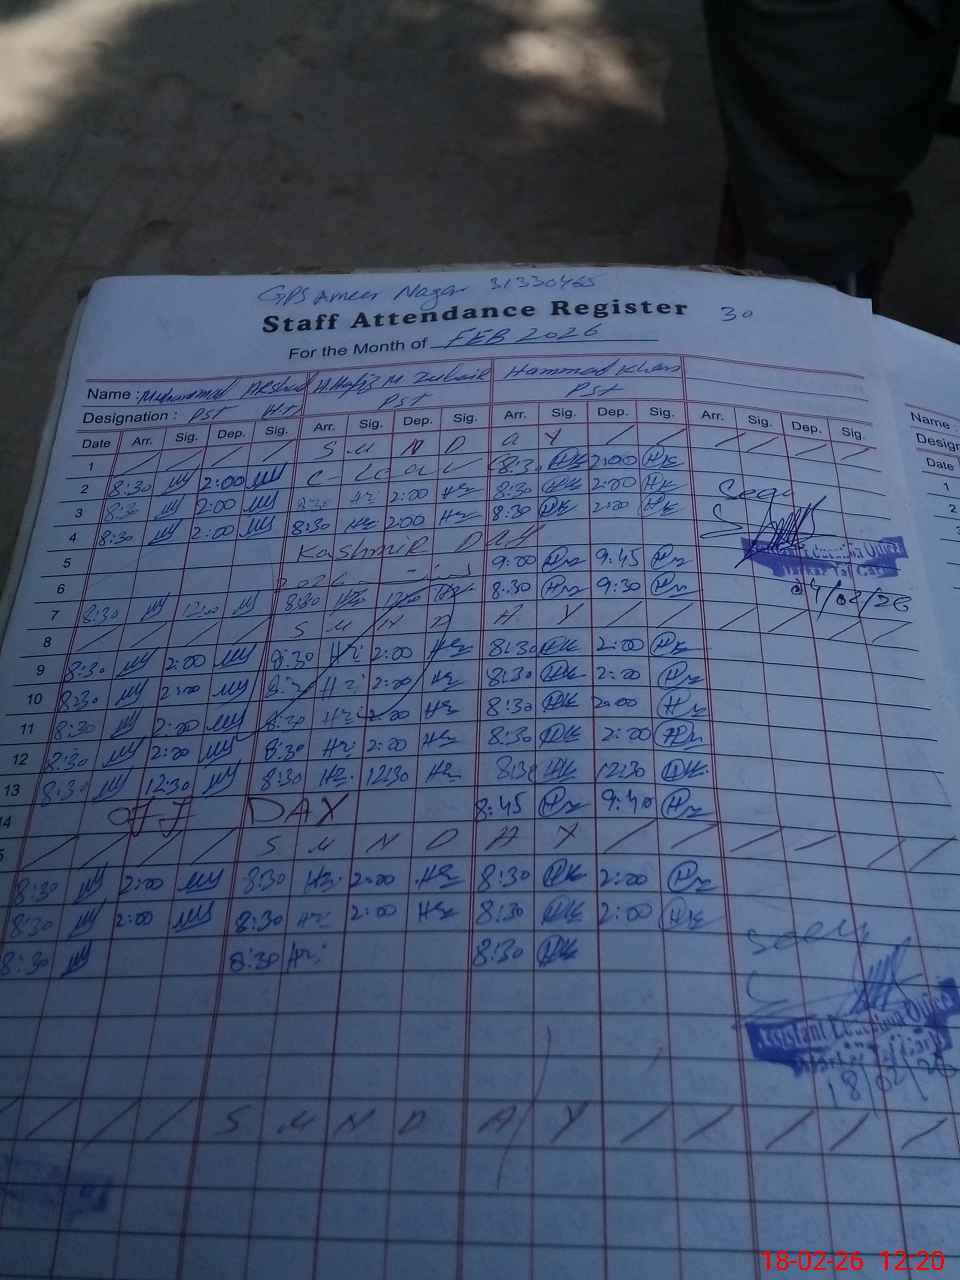 GPS Ameer Nagar 31330465
Staff Attendance Register 30
For the Month of FEB 2026
Name : Muhammad Arshad Hafiz M Zubair Hammad Khan
Designation : PST PST PST
Date Arr. Sig. Dep. Sig. Arr. Sig. Dep. Sig. Arr. Sig. Dep. Sig. Arr. Sig. Dep. Sig.
1 S U N D A Y
2 8:30 2:00 C- Leave 8:30 HK 2:00 HK
3 8:30 2:00 8:30 Hz 2:00 Hz 8:30 HK 2:00 HK
4 8:30 2:00 8:30 Hz 2:00 Hz 8:30 HK 2:00 HK
5 Kashmir DAY 9:00 9:45
6 8:30 9:30
7 8:30 12:00 8:30 Hz 12:00 Hz
8 S U N D A Y
9 8:30 2:00 8:30 Hz 2:00 Hz 8:30 HK 2:00
10 8:30 2:00 8:30 Hz 2:00 Hz 8:30 HK 2:00
11 8:30 2:00 8:30 Hz 2:00 Hz 8:30 HK 2:00
12 8:30 2:00 8:30 Hz 2:00 Hz 8:30 HK 2:00
13 8:30 12:30 8:30 Hz 12:30 Hz 8:30 HK 12:30 HK
14 OFF DAY 8:45 9:40
5 S U N D A Y
8:30 2:00 8:30 Hz 2:00 Hz 8:30 HK 2:00
8:30 2:00 8:30 Hz 2:00 Hz 8:30 HK 2:00 HK
8:30 8:30 Hz 8:30 HK
S U N D A Y
Seen
Assistant Education Officer
04/02/26
Seen
Assistant Education Officer
18/02/26
Name :
Design
Date
1
2
3
18-02-26 12:20